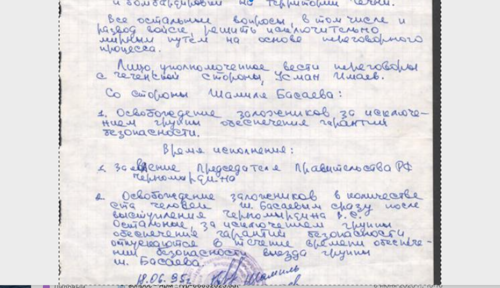 и бомбардировки на территории Чечни.
Все остальные вопросы, в том числе и
развод войск, решить исключительно
мирным путем на основе переговорного
процесса.
Лицо, уполномоченное вести переговоры
с чеченской стороны, Усман Имаев.
Со стороны Шамиля Басаева:
1. Освобождение заложников за исключе-
нием группы обеспечения гарантий
безопасности.
Время исполнения:
Заявление Председателя Правительства РФ
Черномырдина
2. Освобождение заложников в количестве
ста человек Ш. Басаевым сразу после
выступления Черномырдина В.С.
Остальные за исключением группы
обеспечения гарантий безопасности
отпускаются в течение времени обеспече-
ния безопасности выезда группы
Ш. Басаева
18.06.95г. Шамиль